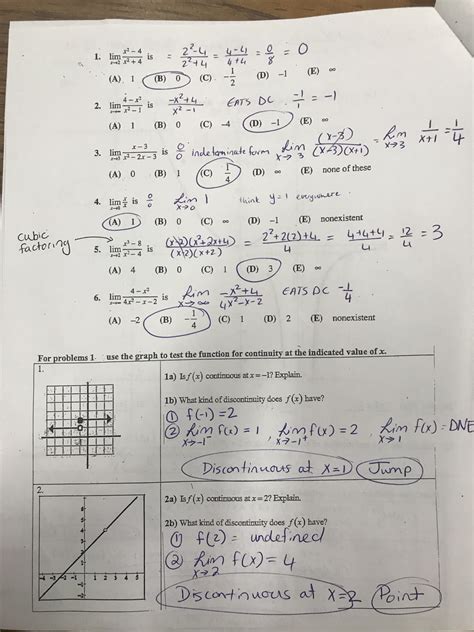 1. lim x→2 x² – 4 / x² + 4 is = 2²-4 / 2²+4 = 4-4 / 4+4 = 0/8 = 0
(A) 1 (B) 0 (C) -1/2 (D) –1 (E) ∞
2. lim 4 – x² / x² – 1 is -x²+4 / x²-1 EATS DC -1/1 = -1
(A) 1 (B) 0 (C) –4 (D) –1 (E) ∞
3. lim x→3 x – 3 / x² – 2x – 3 is 0/0 indeterminate form Lim x→3 (x-3) / (x-3)(x+1) = Lim x→3 1 / x+1 = 1/4
(A) 0 (B) 1 (C) 1/4 (D) ∞ (E) none of these
4. lim x→0 x/x is 0/0 Lim x→0 1 think y=1 everywhere.
(A) 1 (B) 0 (C) ∞ (D) –1 (E) nonexistent
cubic
factoring
5. lim x→2 x³ – 8 / x² – 4 is (x-2)(x²+2x+4) / (x-2)(x+2) = 2²+2(2)+4 / 4 = 4+4+4 / 4 = 12/4 = 3
(A) 4 (B) 0 (C) 1 (D) 3 (E) ∞
6. lim x→∞ 4 – x² / 4x² – x – 2 is Lim x→∞ -x²+4 / 4x²-x-2 EATS DC -1/4
(A) –2 (B) -1/4 (C) 1 (D) 2 (E) nonexistent
For problems 1- use the graph to test the function for continuity at the indicated value of x.
1.
1a) Is f (x) continuous at x = –1? Explain.
1b) What kind of discontinuity does f (x) have?
① f(-1) = 2
② Lim x→-1⁻ f(x) = 1, Lim x→-1⁺ f(x) = 2, Lim x→1 f(x) = DNE
Discontinuous at x=1 Jump
2.
2a) Is f (x) continuous at x = 2? Explain.
2b) What kind of discontinuity does f (x) have?
① f(2) = undefined
② Lim x→2 f(x) = 4
Discontinuous at x=2 Point